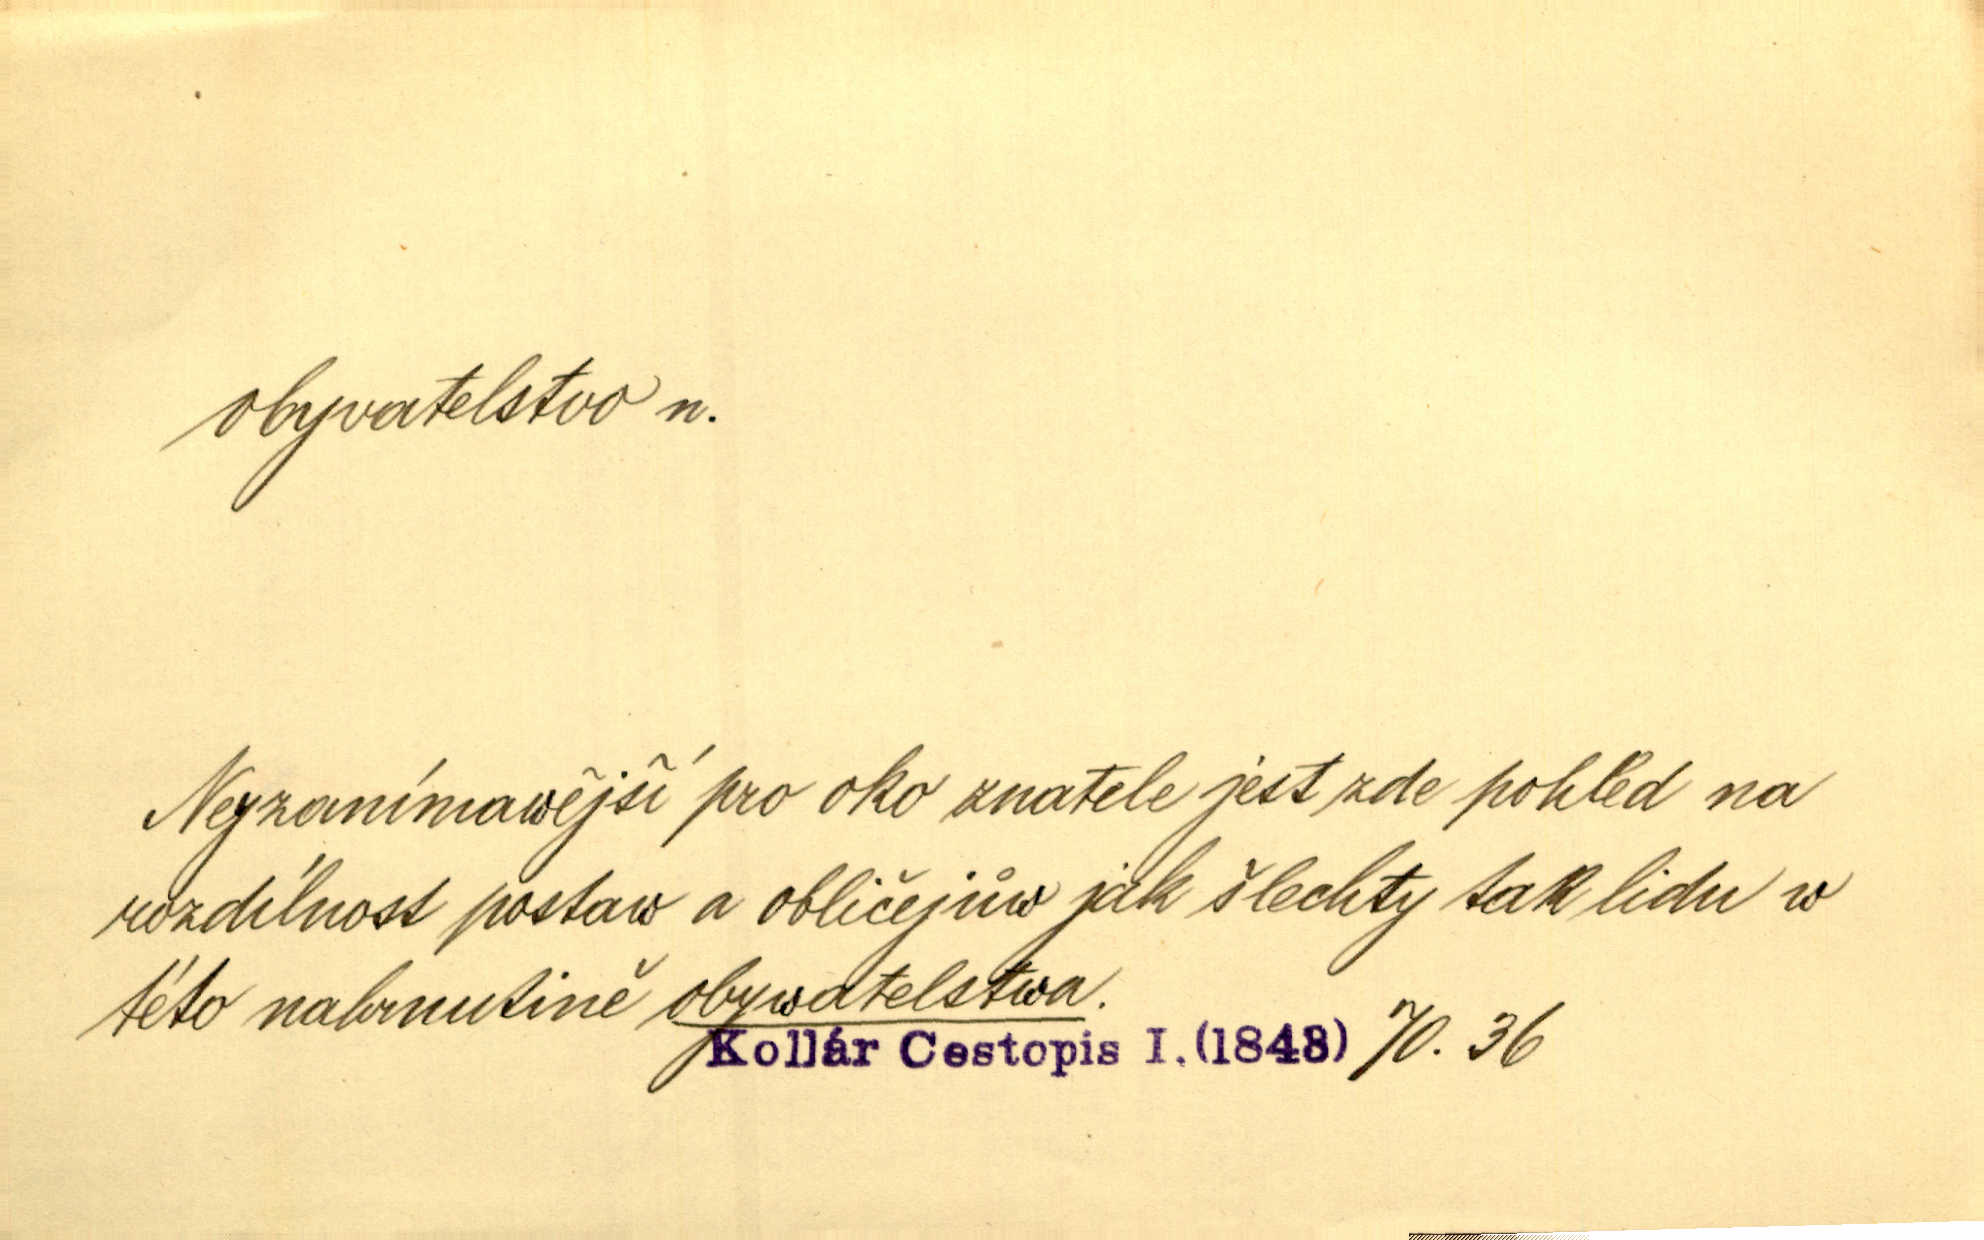 obyvatelstvo n.
Neyzanímawější pro oko znatele jest zde pohled na
rozdílnost postaw a obličejůw jak šlechty tak lidu w
této nahrnutině obywatelstwa.
Kollár Cestopis I.(1843) 70. 36